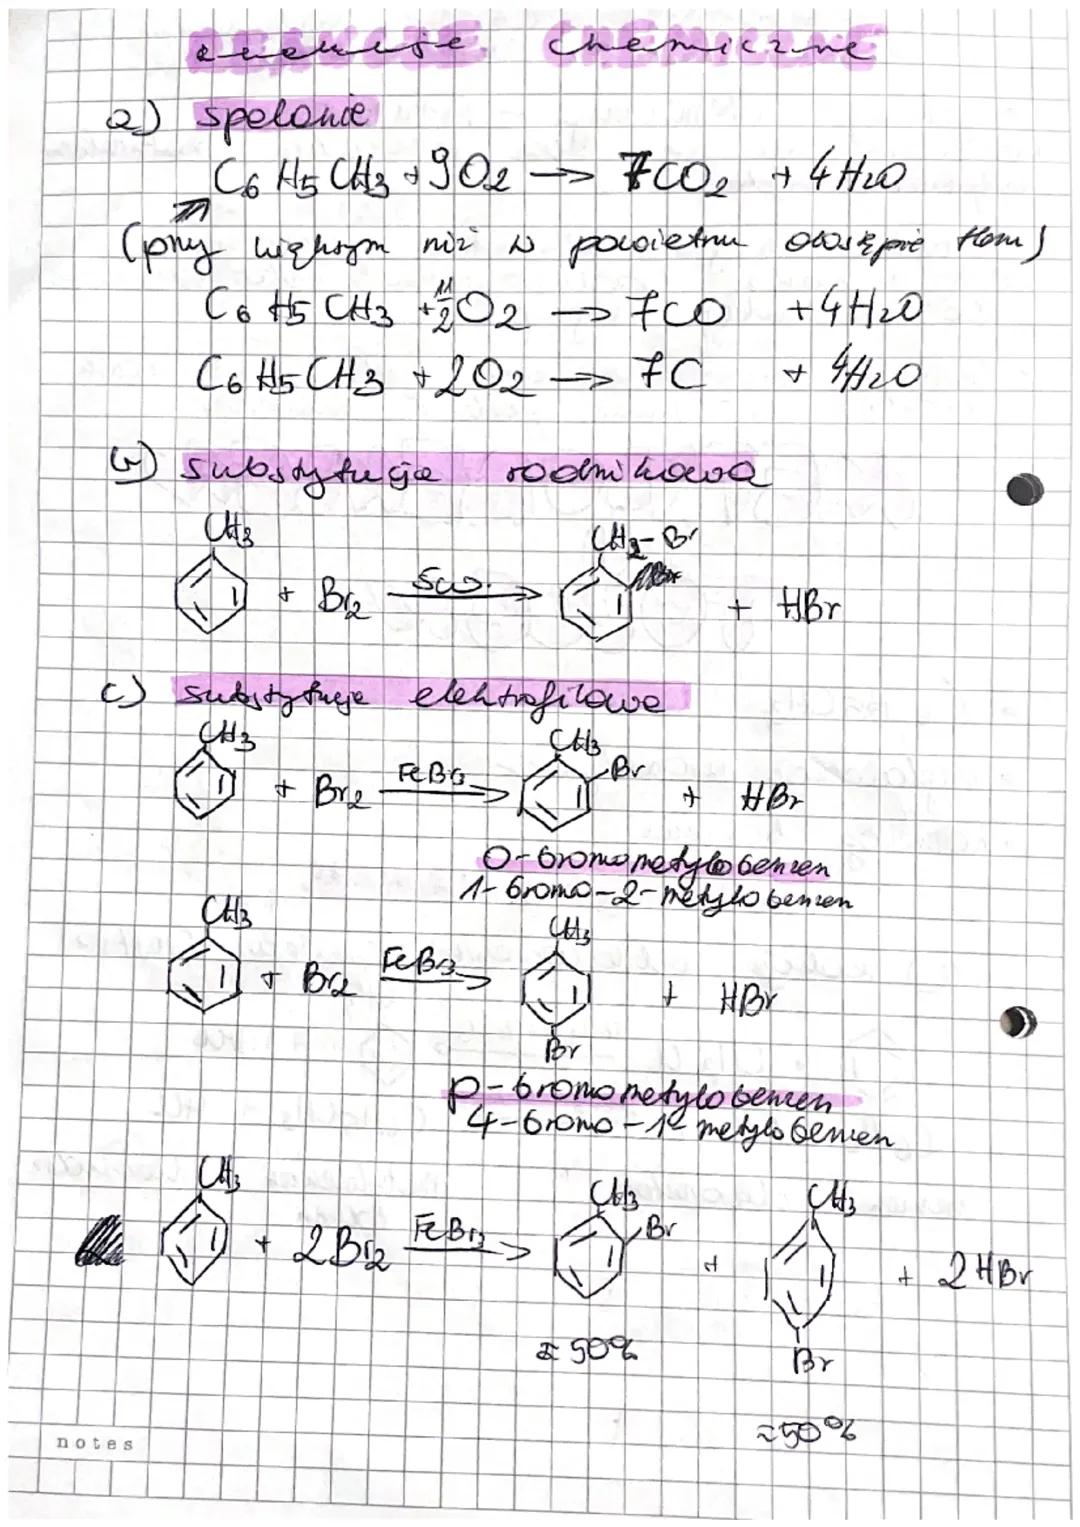 Reakcje chemiczne
a) spalanie
C6H5CH3 + 9O2 → 7CO2 + 4H2O
(przy większym niż w powietrzu dostępie tlenu)
C6H5CH3 + 11/2 O2 → 7CO + 4H2O
C6H5CH3 + 2O2 → 7C + 4H2O
b) substytucja rodnikowa
CH3 CH2-Br
+ Br2 św. → + HBr
c) substytucja elektrofilowa
CH3 CH3
+ Br2 FeBr3 → Br + HBr
o-bromometylobenzen
1-bromo-2-metylobenzen
CH3 CH3
+ Br2 FeBr3 → + HBr
Br
p-bromometylobenzen
4-bromo-1-metylobenzen
CH3 CH3 CH3
+ 2Br2 FeBr3 → Br + + 2HBr
≈ 50% Br
≈ 50%
notes